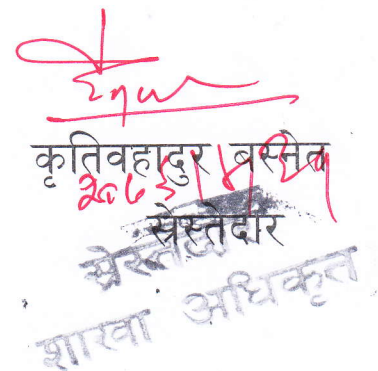 कृतिवहादुर बस्नेत
स्रेस्तेदार
स्रेस्तेदार
शाखा अधिकृत